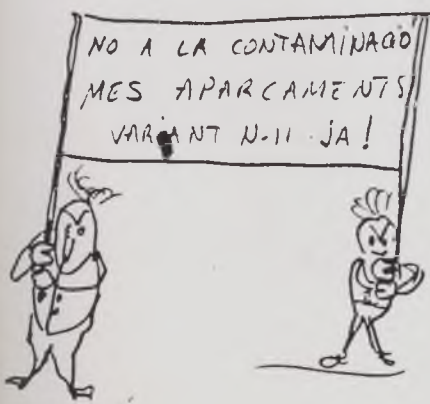 NO A LA CONTAMINACIÓ
MES APARCAMENTS
VARIANT N-II JA!